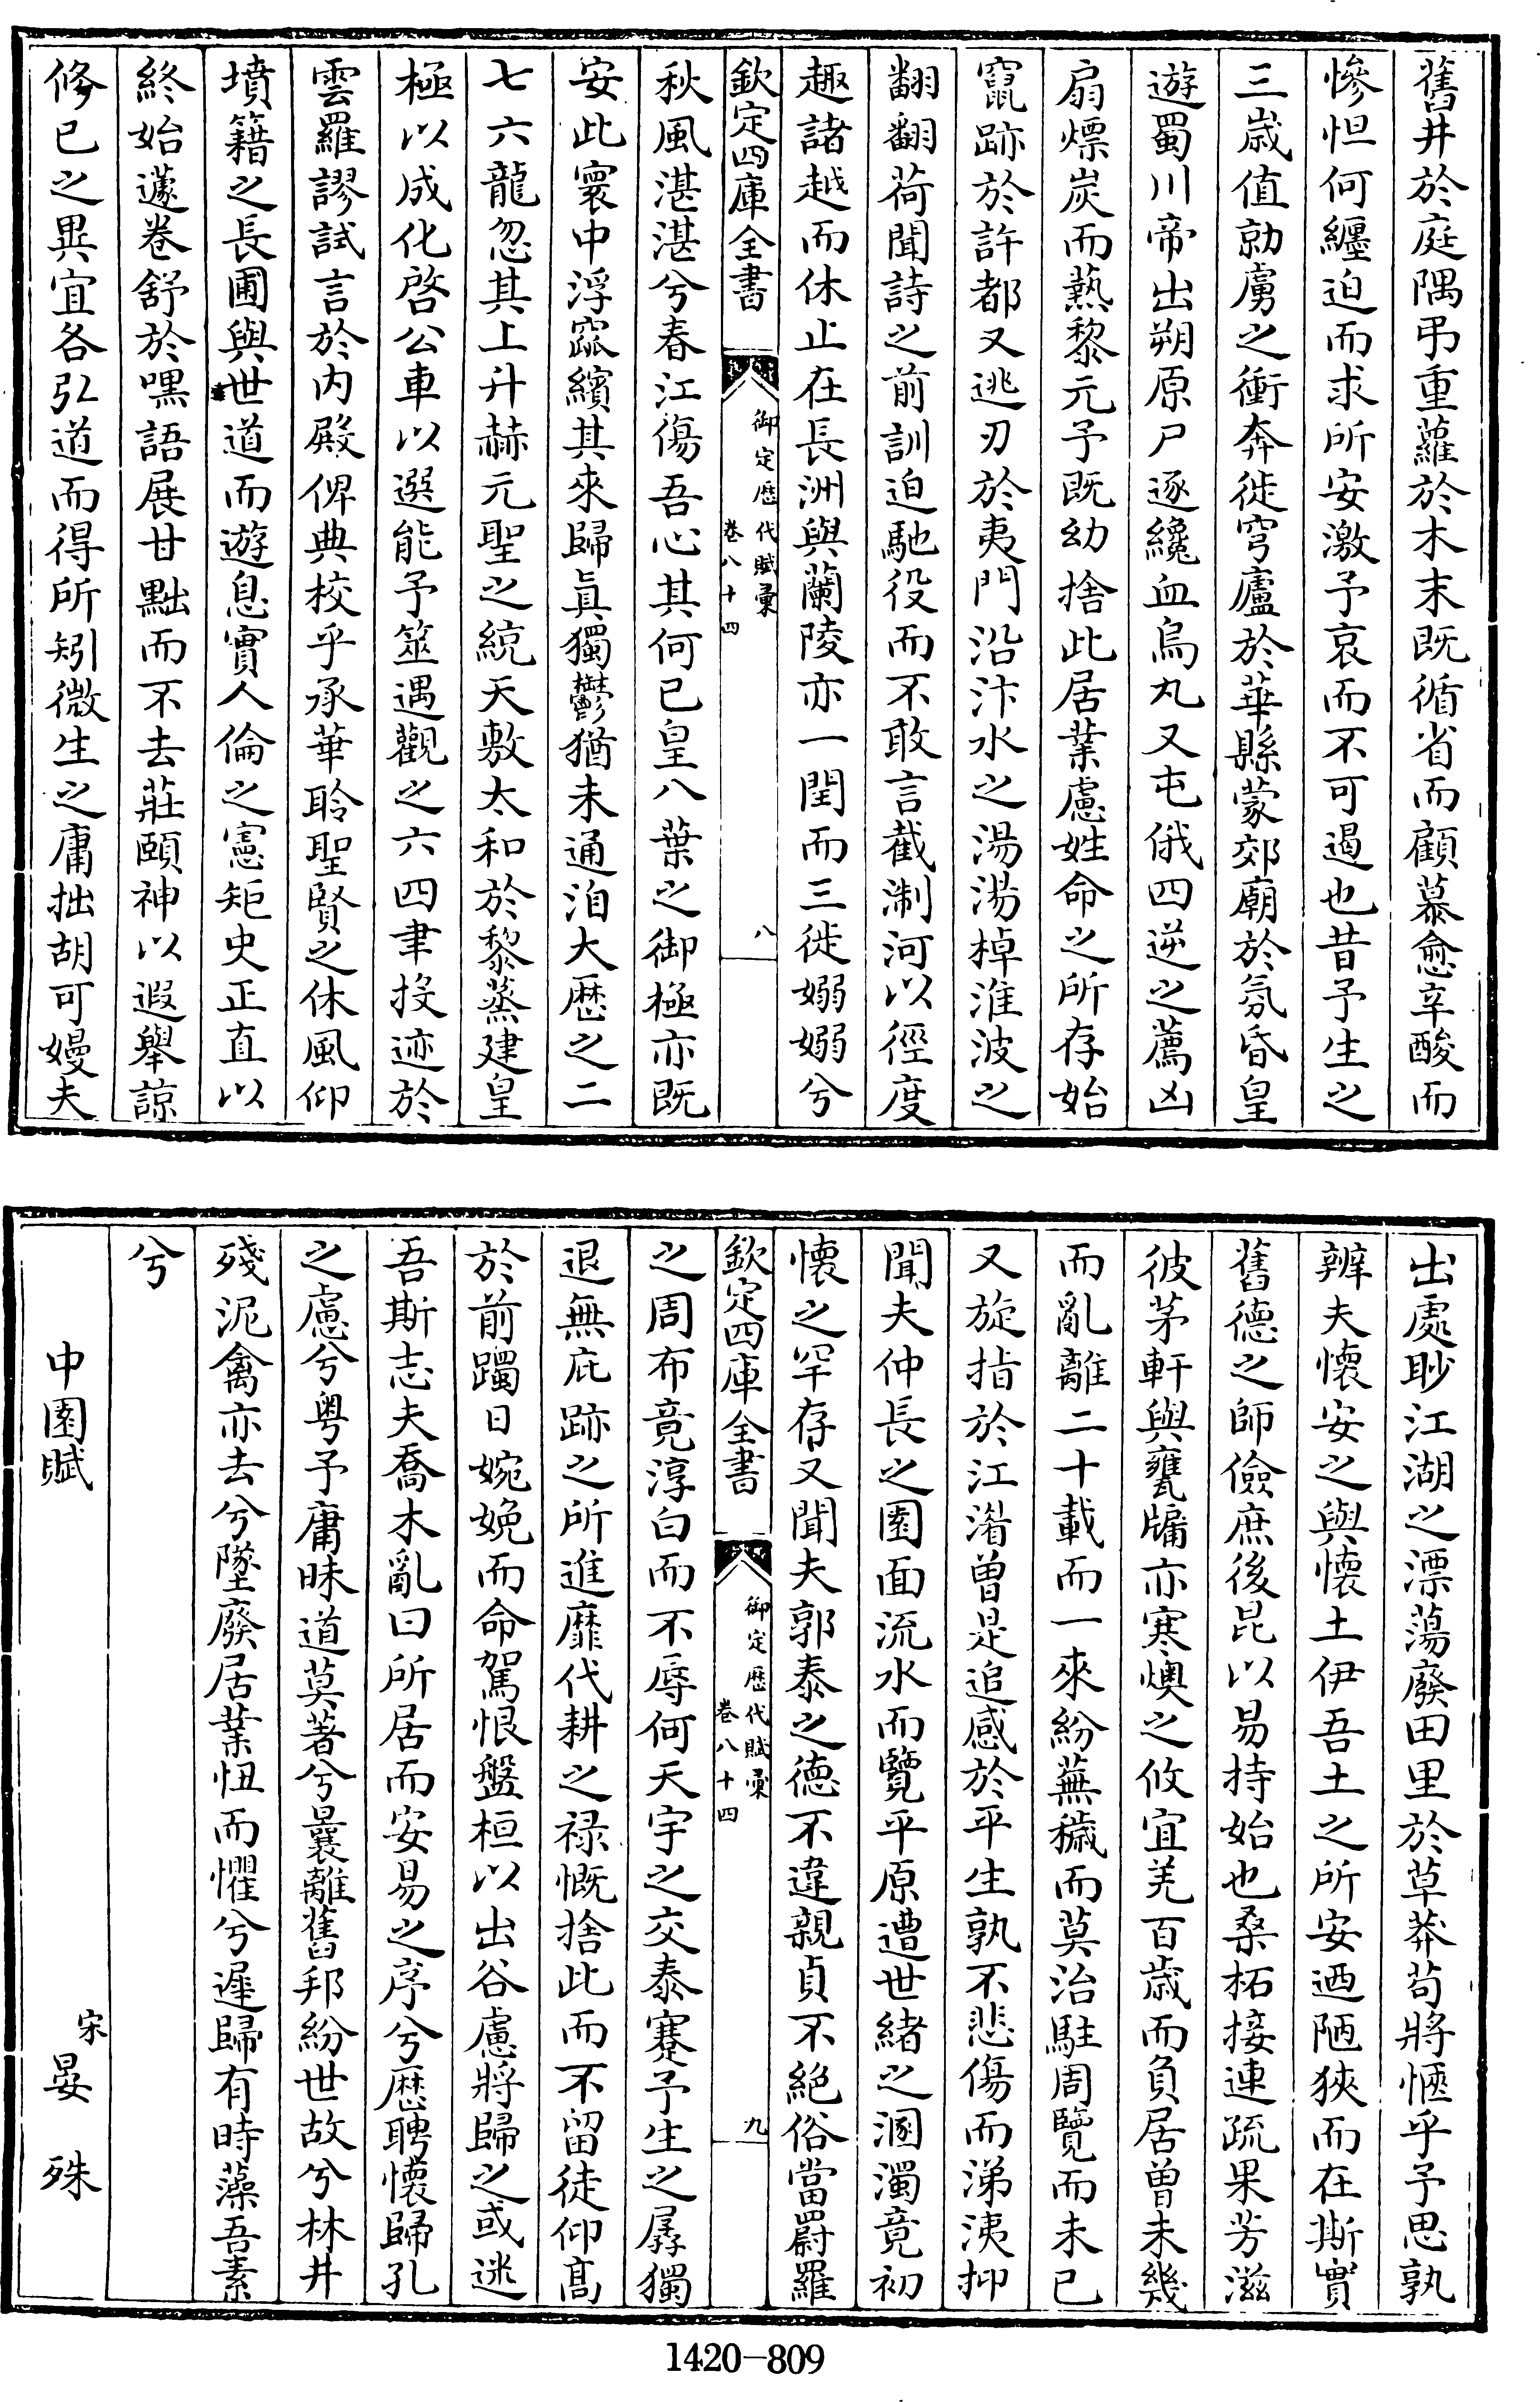 舊井於庭隅弔重蘿於木末既循省而顧慕愈辛酸而
慘怛何纏迫而求所安激予哀而不可遏也昔予生之
三歲值勍虜之衝奔徙穹廬於華縣蒙郊廟於氛昏皇
遊蜀川帝出朔原尸逐纔血烏丸又屯俄四逆之薦凶
扇熛炭而爇黎元予既幼捨此居業慮姓命之所存始
竄跡於許都又逃刃於夷門沿汴水之湯湯棹淮波之
翻翻荷聞詩之前訓迫馳役而不敢言截淛河以徑度
趣諸越而休止在長洲與蘭陵亦一閏而三徙嫋嫋兮
欽定四庫全書
御定歷代賦彙
卷八十四
八
秋風湛湛兮春江傷吾心其何已皇八葉之御極亦既
安此寰中浮竄繽其來歸眞獨鬱猶未通洎大歷之二
七六龍忽其上升赫元聖之統天敷太和於黎蒸建皇
極以成化啓公車以選能予筮遇觀之六四聿投迹於
雲羅謬試言於内殿俾典校乎承華聆聖賢之休風仰
墳籍之長圃與世道而遊息實人倫之憲矩史正直以
終始蘧卷舒於嘿語展甘黜而不去莊頤神以遐舉諒
修已之異宜各弘道而得所矧微生之庸拙胡可嫚夫
出處眇江湖之漂蕩廢田里於草莽苟將愜乎予思孰
辨夫懷安之與懷土伊吾土之所安迺陋狹而在斯實
舊德之師儉庶後昆以易持始也桑柘接連疏果芳滋
彼茅軒與甕牖亦寒燠之攸宜羌百歲而負居曽未幾
而亂離二十載而一來紛蕪穢而莫治駐周覽而未已
又旋指於江湄曽是追感於平生孰不悲傷而涕洟抑
聞夫仲長之園面流水而覽平原遭世緒之溷濁竟初
懷之罕存又聞夫郭泰之德不違親貞不絕俗當罻羅
欽定四庫全書
御定歷代賦彙
卷八十四
九
之周布竟淳白而不辱何天宇之交泰蹇予生之孱獨
退無庇跡之所進靡代耕之禄慨捨此而不留徒仰高
於前躅日婉娩而命駕恨盤桓以出谷慮將歸之或迷
吾斯志夫喬木亂曰所居而安易之序兮歷聘懷歸孔
之慮兮粵予庸昧道莫著兮曩離舊邦紛世故兮林井
殘泥禽亦去兮墜廢居業忸而懼兮遲歸有時藻吾素
兮
中園賦
宋
晏殊
1420-809